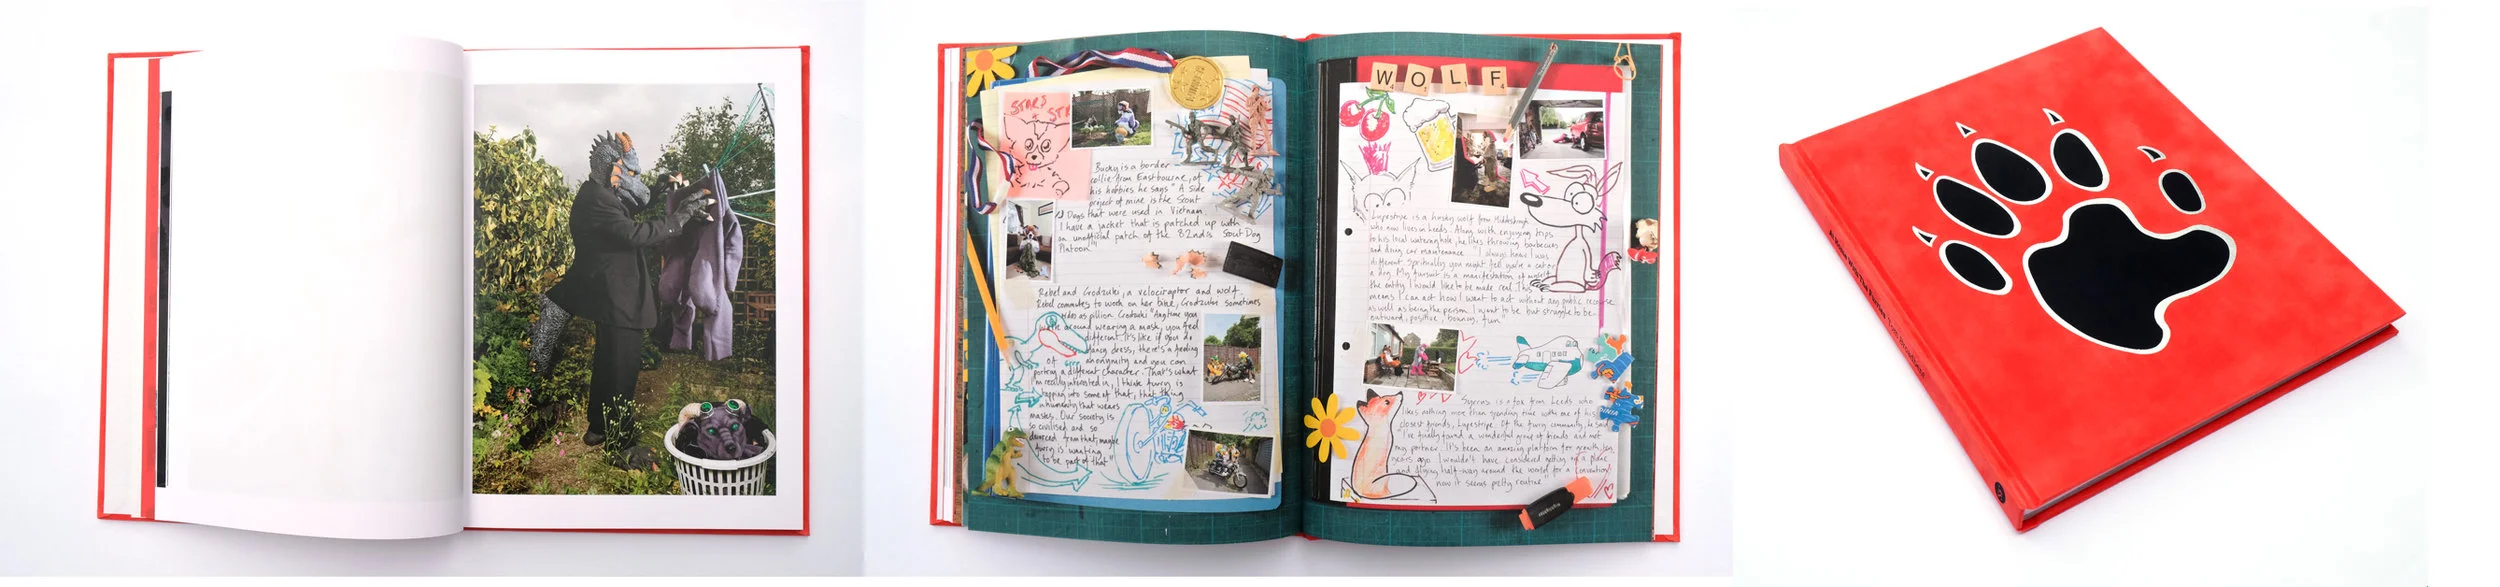 STARS
Bucky is a border
collie from Eastbourne, of
his hobbies he says "A side
project of mine is the Scout
Dogs that were used in Vietnam.
I have a jacket that is patched up with
an unofficial patch of the 82nd's Scout Dog
Platoon"
Rebel and Grodzuki, a velociraptor and wolf.
Rebel commutes to work on her bike, Grodzuki sometimes
rides as pillion. Grodzuki "Anytime you
we're around wearing a mask, you feel
different. It's like if you do
fancy dress, there's a feeling
of anonymity and you can
portray a different character. That's what
I'm really interested in, I think furry is
tapping into some of that, that thing
in humanity that wears
masks. Our society is
so civilised and so
divorced from that, maybe
furry is wanting
to be part of that"
WOLF
Lupestripe is a husky wolf from Middlesbrough
who now lives in Leeds. Along with enjoying trips
to his local watering hole, he likes throwing barbecues
and doing car maintenance. "I always knew I was
different. Spiritually you might feel you're a cat or
a dog. My fursuit is a manifestation of myself
the entity I would like to be made real. This
means I can act how I want to act without any public recourse
as well as being the person I want to be but struggle to be -
outward, positive, bouncy, fun"
Syrros is a fox from Leeds who
likes nothing more than spending time with one of his
closest friends, Lupestripe. Of the furry community, he said
"I've finally found a wonderful group of friends and met
my partner. It's been an amazing platform for growth, ten
years ago I wouldn't have considered getting on a plane
and flying half-way around the world for a convention
now it seems pretty routine"
At Home With The Furries Tom Broadbent